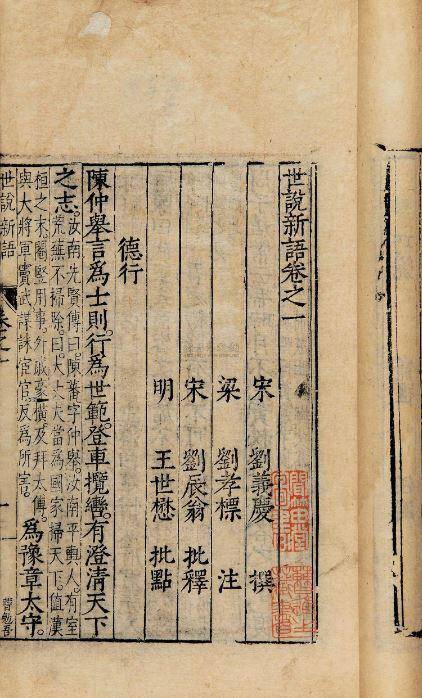 世說新語卷之一
宋 劉義慶 撰
梁 劉孝標 注
宋 劉辰翁 批釋
明 王世懋 批點
德行
陳仲舉言為士則。行為世範。登車攬轡。有澄清天下
之志。汝南先賢傳曰。陳蕃字仲舉。汝南平輿人。有室
荒蕪不掃除。曰。大丈夫當為國家掃天下。值漢
桓之末。閹豎用事。外戚豪橫。及拜太傅。
與大將軍竇武謀誅宦官。反為所害。為豫章太守。
世說新語
卷之一
一